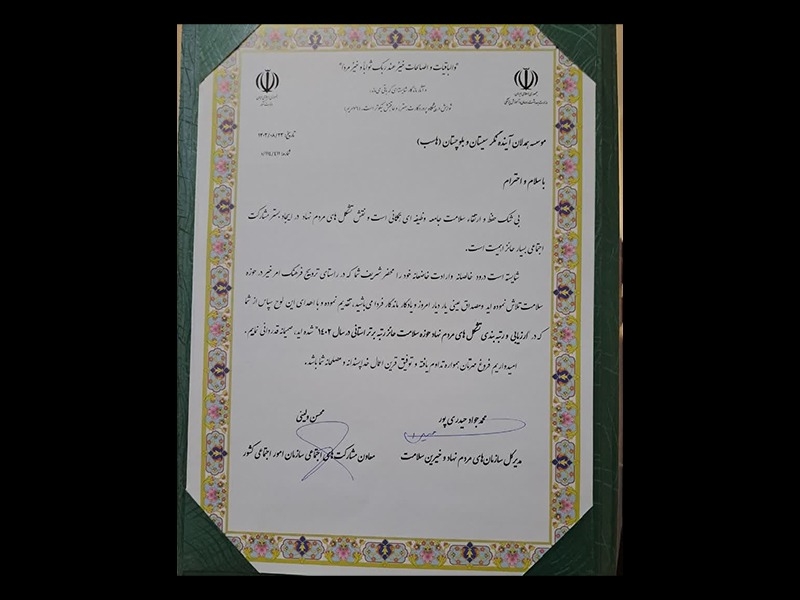 "والباقیات الصالحات خیر عند ربک ثوابا و خیر مردا"
تاریخ: ۱۴۰۲/۰۸/۲۳
شماره:
موسسه همدلان آینده نگر سیستان و بلوچستان (هاسب)
با سلام و احترام
بی شک حفظ و ارتقاء سلامت جامعه وظیفه ای همگانی است و نقش تشکل های مردم نهاد در ایجاد بستر مشارکت
اجتماعی بسیار حائز اهمیت است.
شایسته است درود خالصانه و ارادت خاضعانه خود را محضر شریف شما که در راستای ترویج فرهنگ امر خیر در حوزه
سلامت تلاش نموده اید و مصداق عینی یار دیار امروز و یادگار ماندگار فردا می باشید، تقدیم نموده و با اهدای این لوح سپاس از شما
که در "ارزیابی و رتبه بندی تشکل های مردم نهاد حوزه سلامت حائز رتبه برتر استانی در سال ۱۴۰۲" شده اید، صمیمانه قدردانی نماییم.
امیدواریم فروغ مهرتان همواره تداوم یافته و توفیق قرین اعمال خداپسندانه و مصلحانه شما باشد.
محمد جواد حیدری پور
مدیرکل سازمان های مردم نهاد و خیرین سلامت
محسن ولیئی
معاون مشارکت های اجتماعی سازمان امور اجتماعی کشور